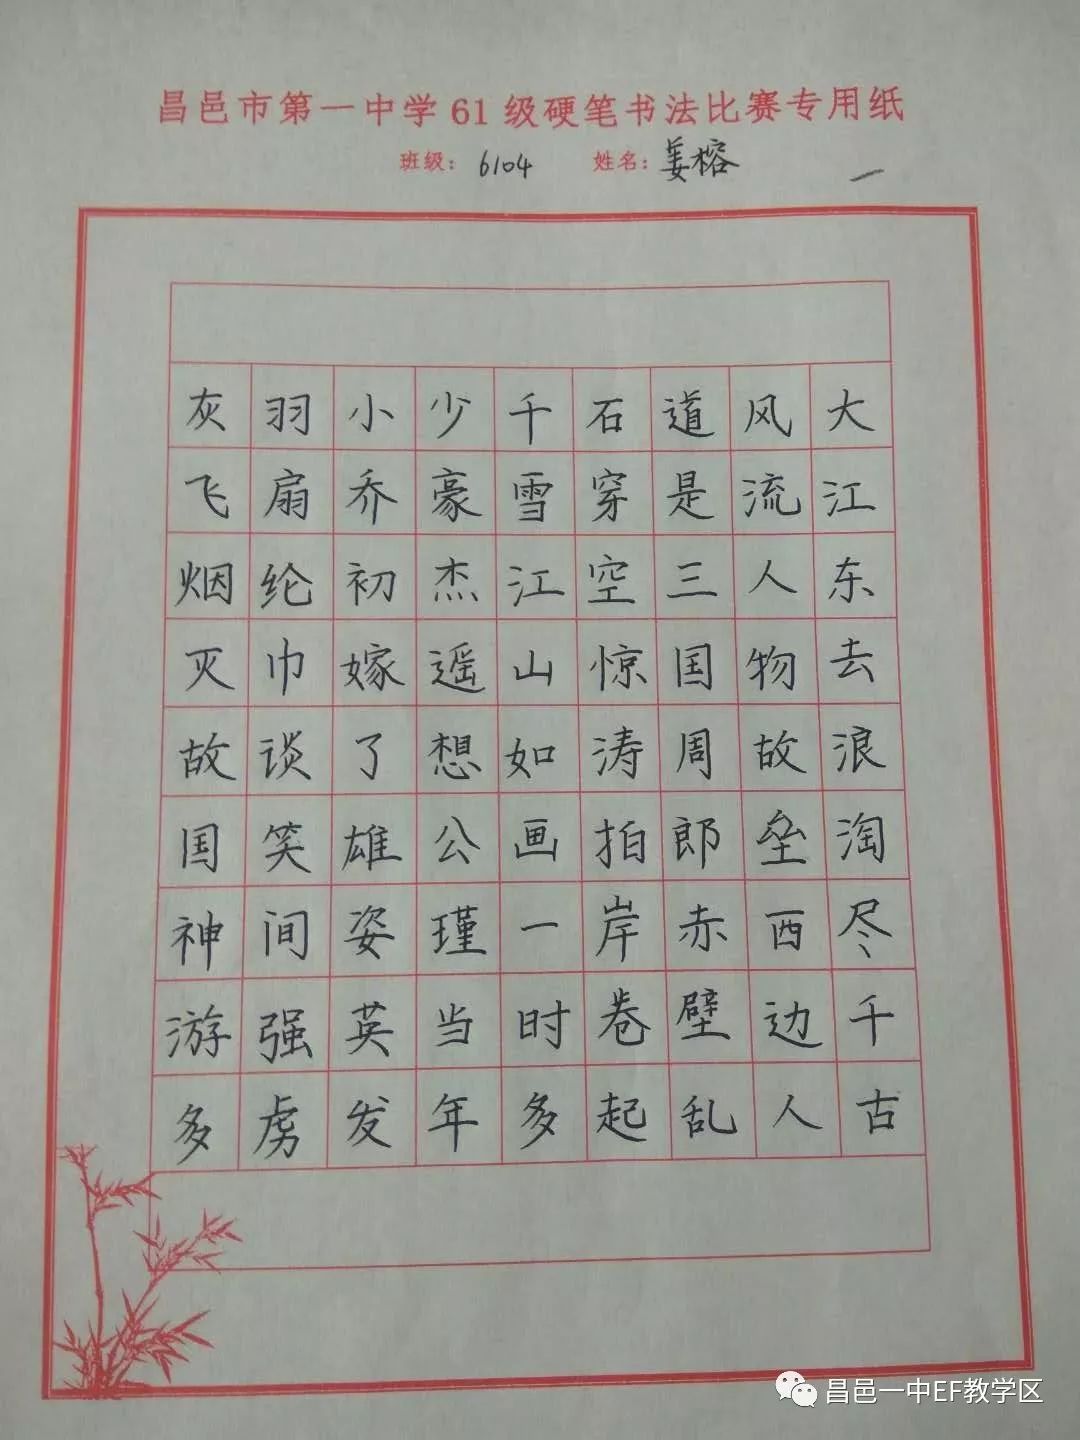 昌邑市第一中学61级硬笔书法比赛专用纸
班级：6104 姓名：姜榕 一
大江东去浪淘尽千古
风流人物故垒西边人
道是三国周郎赤壁乱
石穿空惊涛拍岸卷起
千雪江山如画一时多
少豪杰遥想公瑾当年
小乔初嫁了雄姿英发
羽扇纶巾谈笑间强虏
灰飞烟灭故国神游多
昌邑一中EF教学区